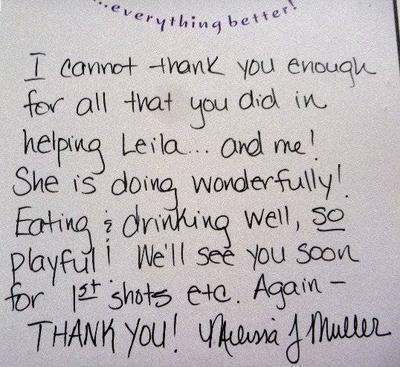 ...everything better!
I cannot thank you enough
for all that you did in
helping Leila... and me!
She is doing wonderfully!
Eating & drinking well, so
playful! We'll see you soon
for 1st shots etc. Again -
THANK YOU! Melissa J Muller